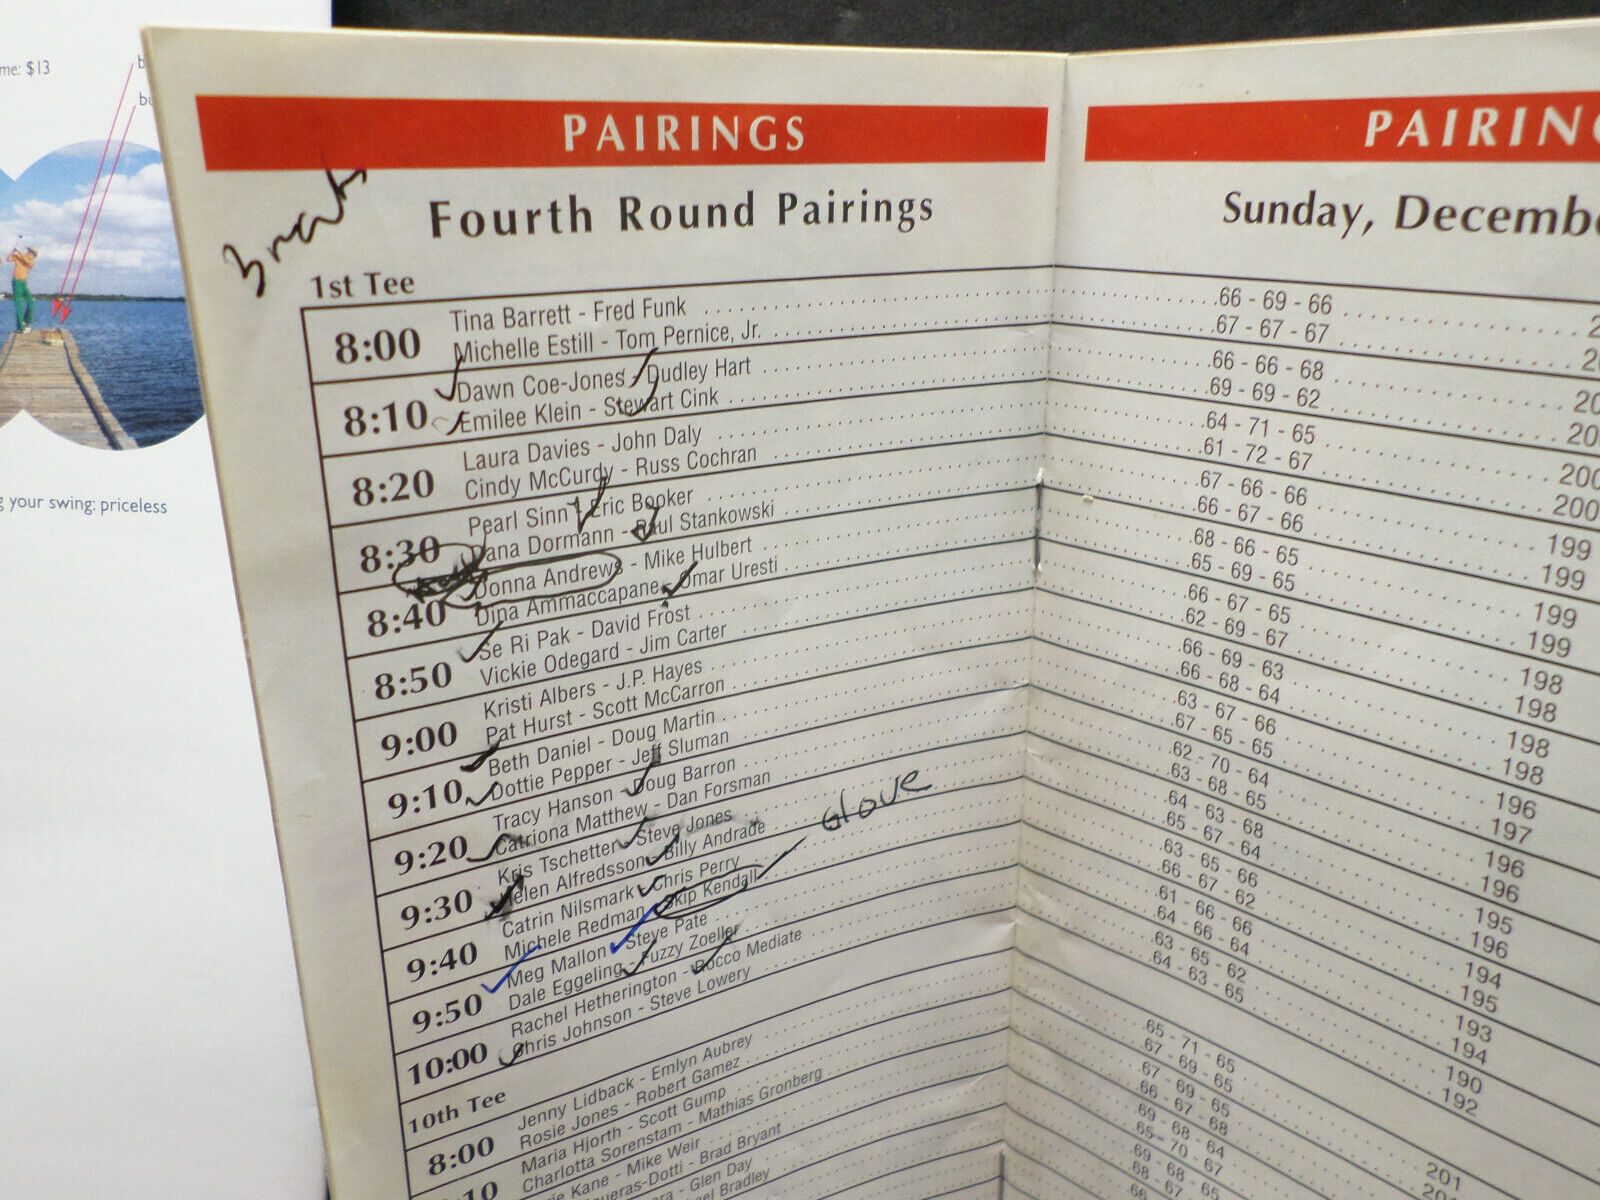 me: $13
g your swing: priceless
PAIRINGS
Fourth Round Pairings
1st Tee
8:00
Tina Barrett - Fred Funk
Michelle Estill - Tom Pernice, Jr.
8:10
Dawn Coe-Jones - Dudley Hart
Emilee Klein - Stewart Cink
8:20
Laura Davies - John Daly
Cindy McCurdy - Russ Cochran
8:30
Pearl Sinn - Eric Booker
Dana Dormann - Paul Stankowski
8:40
Donna Andrews - Mike Hulbert
Dina Ammaccapane - Omar Uresti
8:50
Se Ri Pak - David Frost
Vickie Odegard - Jim Carter
9:00
Kristi Albers - J.P. Hayes
Pat Hurst - Scott McCarron
9:10
Beth Daniel - Doug Martin
Dottie Pepper - Jeff Sluman
9:20
Tracy Hanson - Doug Barron
Catriona Matthew - Dan Forsman
9:30
Kris Tschetter - Steve Jones
Helen Alfredsson - Billy Andrade
9:40
Catrin Nilsmark - Chris Perry
Michele Redman - Skip Kendall
Glove
9:50
Meg Mallon - Steve Pate
Dale Eggeling - Fuzzy Zoeller
10:00
Rachel Hetherington - Rocco Mediate
Chris Johnson - Steve Lowery
10th Tee
8:00
Jenny Lidback - Emlyn Aubrey
Rosie Jones - Robert Gamez
:10
Maria Hjorth - Scott Gump
Charlotta Sorenstam - Mathias Gronberg
Kane - Mike Weir
gueras-Dotti - Brad Bryant
- Glen Day
Bradley
PAIRING
Sunday, Decembe
66 - 69 - 66
67 - 67 - 67
66 - 66 - 68
69 - 69 - 62
64 - 71 - 65 200
61 - 72 - 67 200
67 - 66 - 66 199
66 - 67 - 66 199
68 - 66 - 65 199
65 - 69 - 65 199
66 - 67 - 65 198
62 - 69 - 67 198
66 - 69 - 63 198
66 - 68 - 64 198
63 - 67 - 66 196
67 - 65 - 65 197
62 - 70 - 64 196
63 - 68 - 65 196
64 - 63 - 68 195
65 - 67 - 64 196
63 - 65 - 66 194
66 - 67 - 62 195
61 - 66 - 66 193
64 - 66 - 64 194
63 - 65 - 62 190
64 - 63 - 65 192
65 - 71 - 65 201
67 - 69 - 65
67 - 69 - 65
66 - 67 - 68
69 - 68 - 64
65 - 70 - 67
69 - 68 - 65
68 - 67
66